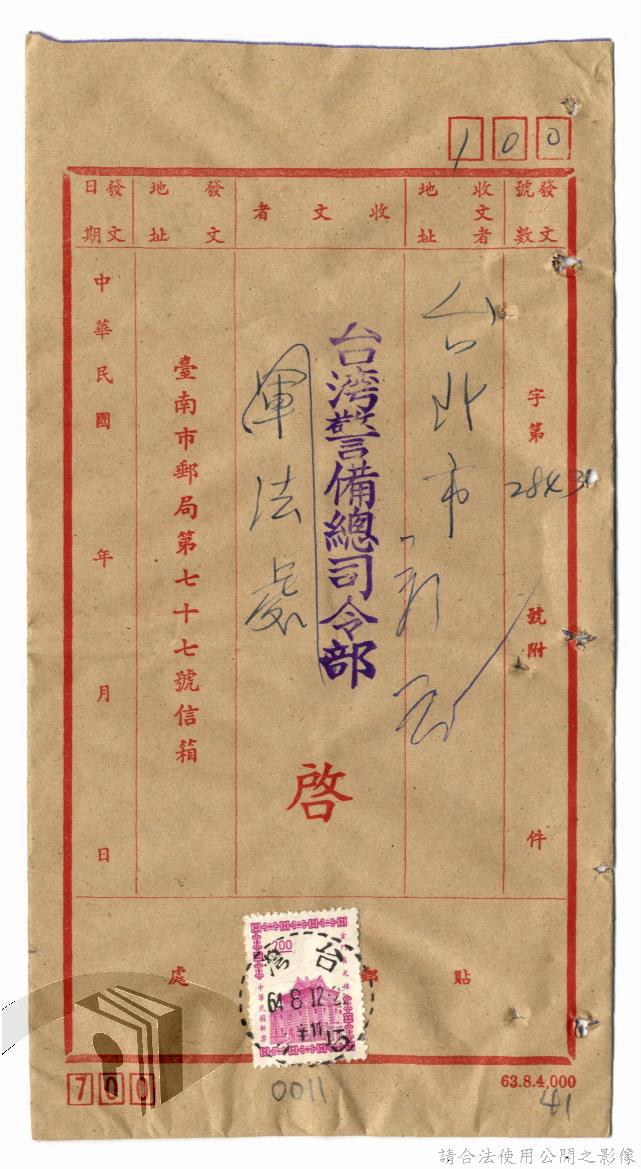 100
發文號數
收文者地址
收文者
發文地址
發文日期
字第 2843 號附 件
台北市
台湾警備總司令部
軍法處
啓
臺南市郵局第七十七號信箱
中華民國 年 月 日
貼郵處
2.00
中華民國郵票
台灣
64.8.12
15
700
0011
63.8.4,000
41
請合法使用公開之影像